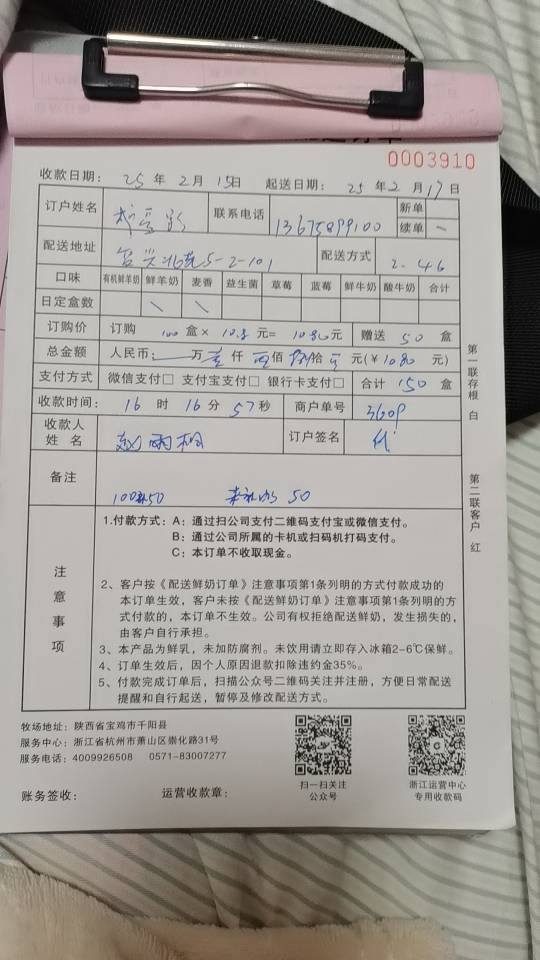 0003910
收款日期: 25 年 2 月 15日 起送日期: 25 年 2 月 17 日
订户姓名 联系电话 13675899100 新单
续单
配送地址 5-2-101 配送方式 2.46
口味 有机鲜羊奶 鲜羊奶 麦香 益生菌 草莓 蓝莓 鲜牛奶 酸牛奶 合计
日定盒数 \ \
订购价 订购 100 盒× 10.8 元= 1080元 赠送 50 盒
总金额 人民币: 万 壹 仟 佰 捌拾 元(¥1080 元)
支付方式 微信支付□ 支付宝支付□ 银行卡支付□ 合计 150 盒
收款时间: 16 时 16 分 57 秒 商户单号 3609
收款人
姓 名 赵雨桐 订户签名 代
备注
100 50 50
注意事项
1.付款方式: A: 通过扫公司支付二维码支付宝或微信支付。
B: 通过公司所属的卡机或扫码机打码支付。
C: 本订单不收取现金。
2、客户按《配送鲜奶订单》注意事项第1条列明的方式付款成功的
本订单生效,客户未按《配送鲜奶订单》注意事项第1条列明的方
式付款的,本订单不生效。公司有权拒绝配送鲜奶,发生损失的,
由客户自行承担。
3、本产品为鲜乳,未加防腐剂。未饮用请立即存入冰箱2-6℃保鲜。
4、订单生效后,因个人原因退款扣除违约金35%。
5、付款完成订单后,扫描公众号二维码关注并注册,方便日常配送
提醒和自行起送,暂停及修改配送方式。
第一联存根 白
第二联客户 红
牧场地址: 陕西省宝鸡市千阳县
服务中心: 浙江省杭州市萧山区崇化路31号
服务电话: 4009926508 0571-83007277
扫一扫关注
公众号
浙江运营中心
专用收款码
账务签收: 运营收款章: